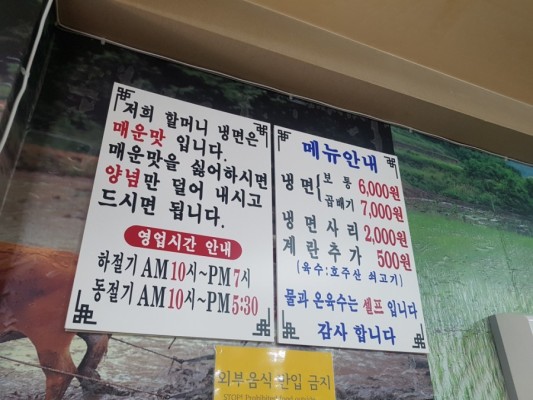 저희 할머니 냉면은
매운맛 입니다.
매운맛을 싫어하시면
양념만 덜어 내시고
드시면 됩니다.
영업시간 안내
하절기 AM10시~PM7시
동절기 AM10시~PM5:30
메뉴안내
냉면 { 보통 6,000원
곱배기 7,000원
냉면사리 2,000원
계란추가 500원
(육수:호주산 쇠고기)
물과 온육수는 셀프 입니다
감사 합니다
외부음식 반입 금지
STOP! Prohibited food